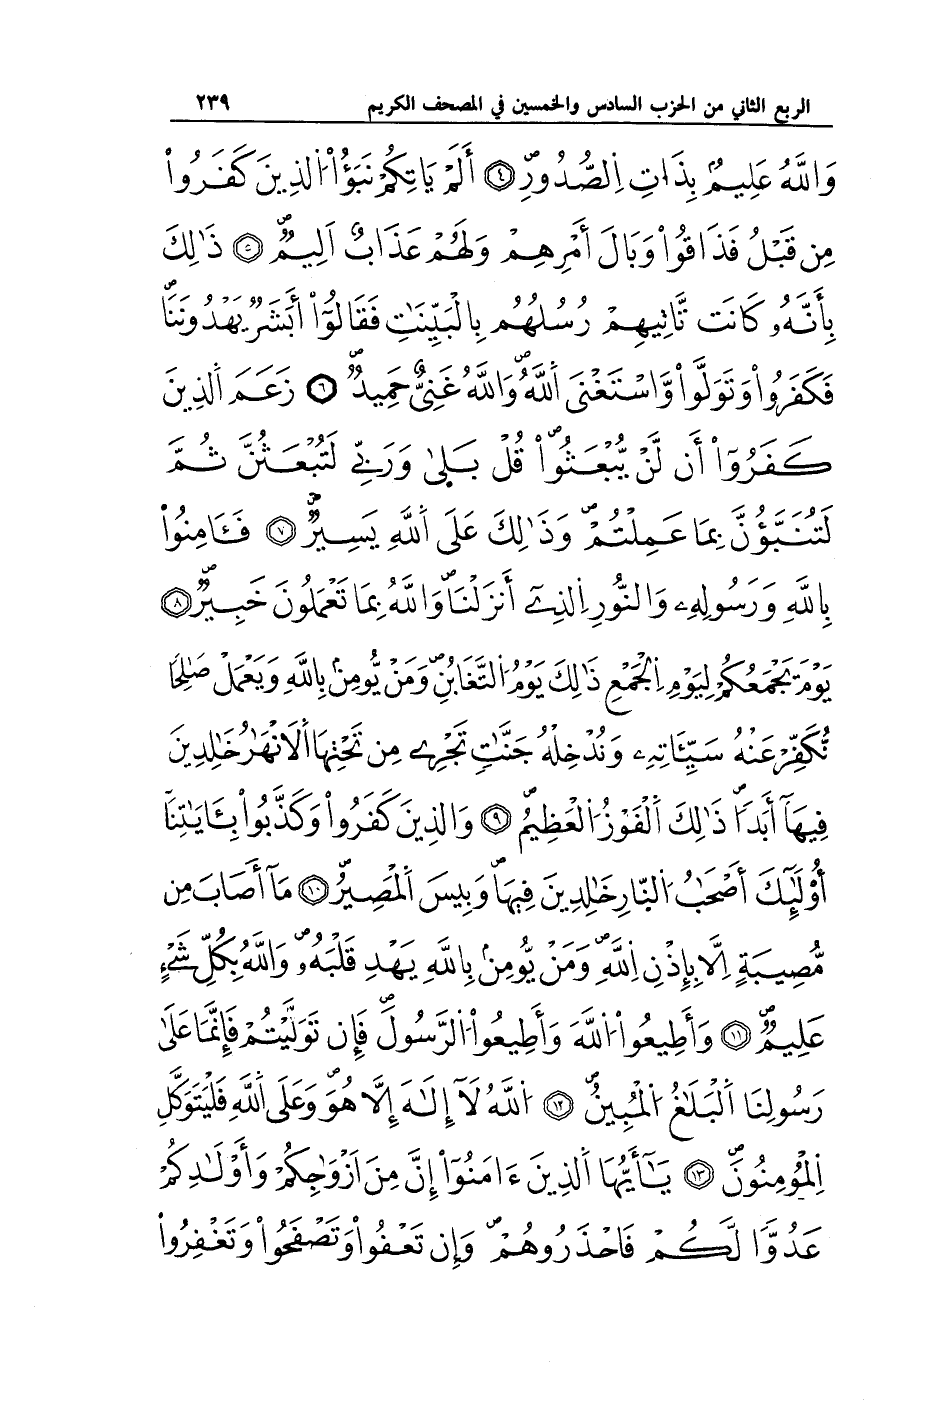 الربع الثاني من الحزب السادس والخمسين في المصحف الكريم ٢٣٩
وَاللَّهُ عَلِيمٌ بِذَاتِ اِلصُّدُورِۖ ٤ أَلَمْ يَاتِكُمْ نَبَؤُاْ اُلذِينَ كَفَرُواْ
مِن قَبْلُ فَذَاقُواْ وَبَالَ أَمْرِهِمْ وَلَهُمْ عَذَابٌ اَلِيمٌۖ ٥ ذَٰلِكَ
بِأَنَّهُۥ كَانَت تَّاتِيهِمْ رُسُلُهُم بِالْبَيِّنَٰتِ فَقَالُوٓاْ أَبَشَرٌ يَهْدُونَنَاۖ
فَكَفَرُواْ وَتَوَلَّواْ وَّاسْتَغْنَى اَللَّهُۖ وَاللَّهُ غَنِيٌّ حَمِيدٌۖ ٦ زَعَمَ اَلذِينَ
كَفَرُوٓاْ أَن لَّنْ يُّبْعَثُواْۖ قُلْ بَلَىٰ وَرَبِّے لَتُبْعَثُنَّ ثُمَّ
لَتُنَبَّؤُنَّ بِمَا عَمِلْتُمْۖ وَذَٰلِكَ عَلَى اَللَّهِ يَسِيرٌۖ ٧ فَـَٔامِنُواْ
بِاللَّهِ وَرَسُولِهِۦ وَالنُّورِ اِلذِےٓ أَنزَلْنَاۖ وَاللَّهُ بِمَا تَعْمَلُونَ خَبِيرٌۖ ٨
يَوْمَ يَجْمَعُكُمْ لِيَوْمِ اِلْجَمْعِ ذَٰلِكَ يَوْمُ اُلتَّغَابُنِۖ وَمَنْ يُّومِنۢ بِاللَّهِ وَيَعْمَلْ صَٰلِحاً
نُّكَفِّرْ عَنْهُ سَيِّـَٔاتِهِۦ وَنُدْخِلْهُ جَنَّٰتٍ تَجْرِے مِن تَحْتِهَا اَلَانْهَٰرُ خَٰلِدِينَ
فِيهَآ أَبَداًۖ ذَٰلِكَ اَلْفَوْزُ اُلْعَظِيمُۖ ٩ وَالذِينَ كَفَرُواْ وَكَذَّبُواْ بِـَٔايَٰتِنَآ
أُوْلَٰٓئِكَ أَصْحَٰبُ اُلنّارِ خَٰلِدِينَ فِيهَاۖ وَبِيسَ اَلْمَصِيرُۖ ١٠ مَآ أَصَابَ مِن
مُّصِيبَةٍ اِلَّا بِإِذْنِ اِللَّهِۖ وَمَنْ يُّومِنۢ بِاللَّهِ يَهْدِ قَلْبَهُۥۖ وَاللَّهُ بِكُلِّ شَےْءٍ
عَلِيمٌۖ ١١ وَأَطِيعُواْ اُللَّهَ وَأَطِيعُواْ اُلرَّسُولَۖ فَإِن تَوَلَّيْتُمْ فَإِنَّمَا عَلَىٰ
رَسُولِنَا اَلْبَلَٰغُ اُلْمُبِينُۖ ١٢ اُللَّهُ لَآ إِلَٰهَ إِلَّا هُوَۖ وَعَلَى اَللَّهِ فَلْيَتَوَكَّلِ
اِلْمُومِنُونَۖ ١٣ يَٰٓأَيُّهَا اَلذِينَ ءَامَنُوٓاْ إِنَّ مِنَ اَزْوَٰجِكُمْ وَأَوْلَٰدِكُمْ
عَدُوّاً لَّكُمْ فَاحْذَرُوهُمْۖ وَإِن تَعْفُواْ وَتَصْفَحُواْ وَتَغْفِرُواْ